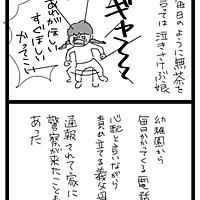 毎日のように無茶を
言っては泣きさけぶ娘
ギャーーー
あれがほしい
すぐほしい
かってこい
幼稚園から
毎日かかってくる電話
心配と言いながら
責め立てる義父母
通報されて家に
警察が来たことも
あった